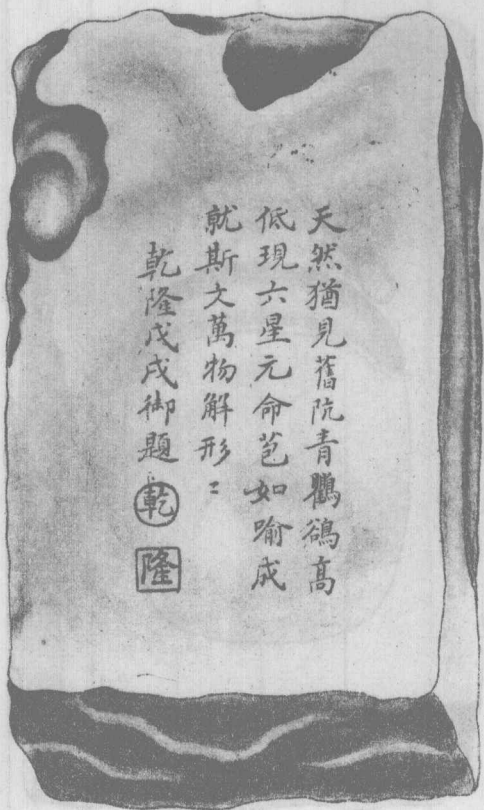 天然猶見舊阬青鸜鵒髙
低現六星元命苞如喻成
就斯文萬物解形〻
乾隆戊戌御題
乾
隆